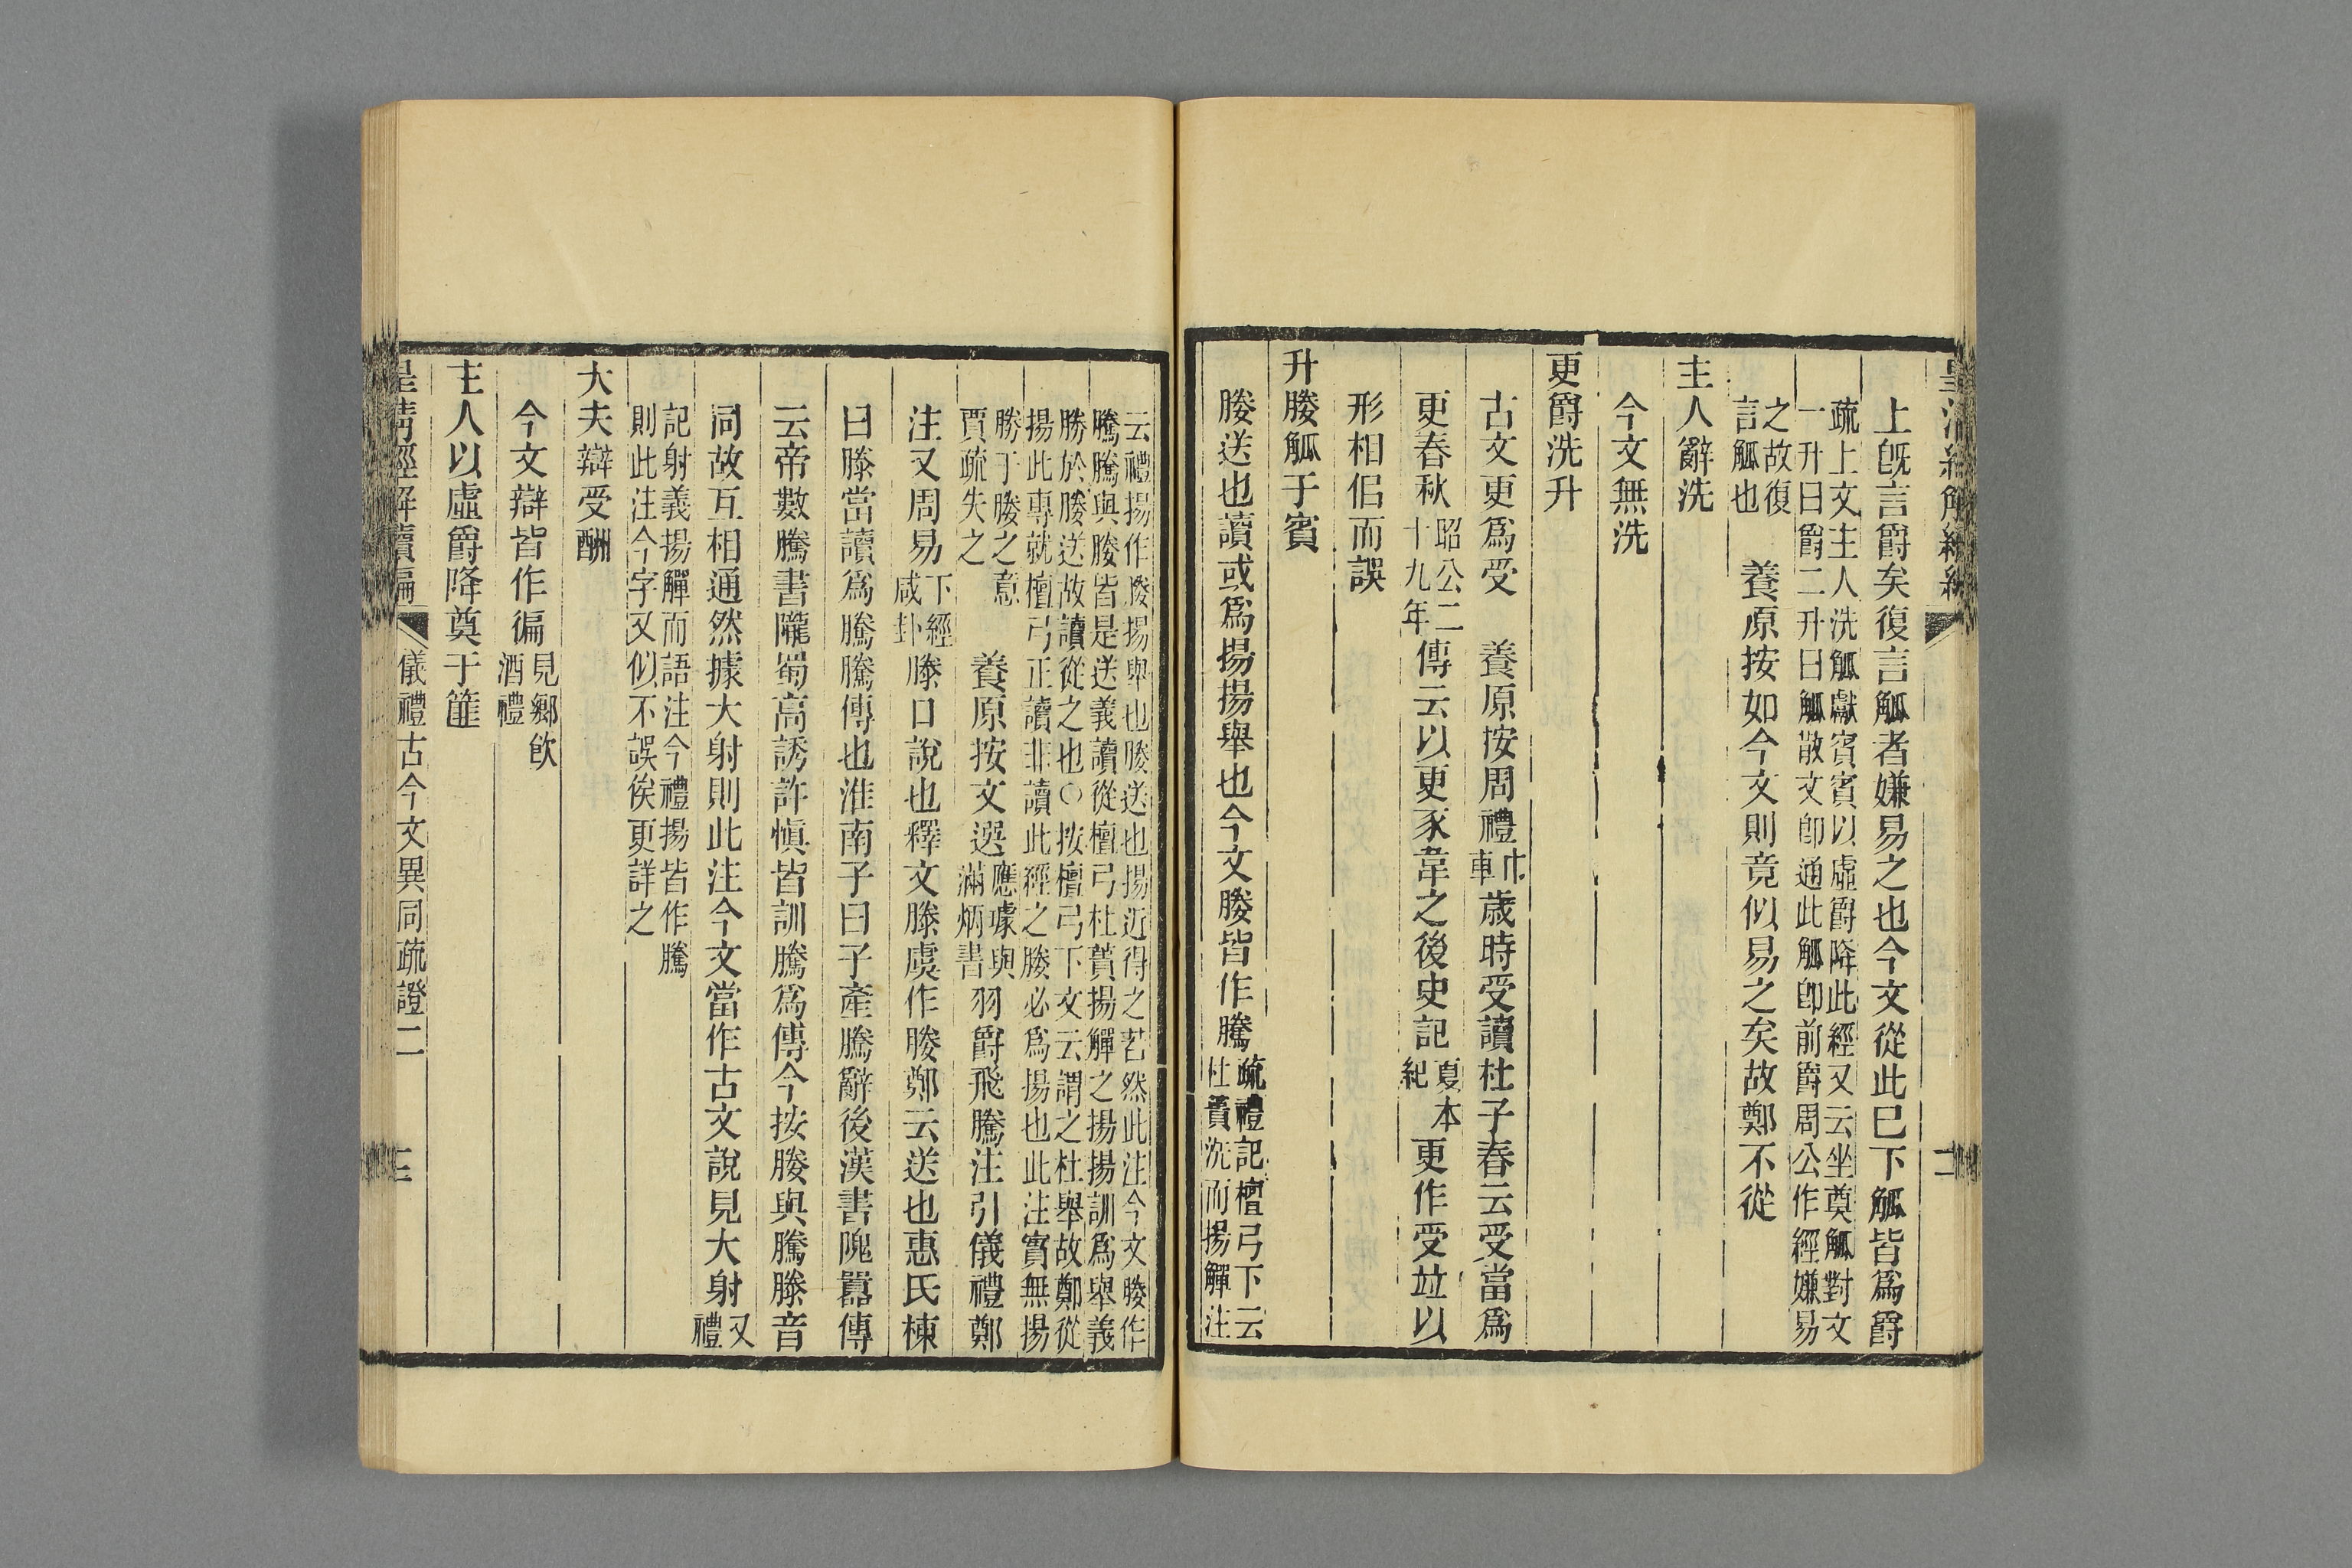 上旣言爵矣復言觚者嫌易之也今文從此巳下觚皆爲爵
疏上文主人洗觚獻賓賓以虛爵降此經又云坐奠觚對文
一升曰爵二升曰觚散文卽通此觚卽前爵周公作經嫌易
之故復
言觚也
養原按如今文則竟似易之矣故鄭不從
主人辭洗
今文無洗
更爵洗升
古文更爲受　養原按周禮巾車歳時受讀杜子春云受當爲
更春秋昭公二十九年傳云以更豕韋之後史記夏本紀更作受竝以
形相侣而誤
升媵觚于賓
媵送也讀或爲揚揚舉也今文媵皆作騰疏禮記檀弓下云
杜蕢洗而揚觶注
云禮揚作媵揚舉也媵送也揚近得之若然此注今文媵作
騰騰與媵皆是送義讀從檀弓杜蕢揚觶之揚揚訓爲舉義
勝於媵送故讀從之也○按檀弓下文云謂之杜舉故鄭從
揚此專就檀弓正讀非讀此經之媵必爲揚也此注實無揚
勝于媵之意
賈疏失之
養原按文選應璩與滿炳書羽爵飛騰注引儀禮鄭
注又周易下經咸卦滕口說也釋文滕虞作媵鄭云送也惠氏棟
曰滕當讀爲騰騰傳也淮南子曰子產騰辭後漢書隗囂傳
云帝數騰書隴蜀高誘許愼皆訓騰爲傳今按媵與騰滕音
同故互相通然據大射則此注今文當作古文說見大射又禮
記射義揚觶而語注今禮揚皆作騰
則此注今字又似不誤俟更詳之
大夫辯受酬
今文辯皆作徧見鄉飮酒禮
主人以虛爵降奠于篚
皇淸經解續編　儀禮古今文異同疏證二　三